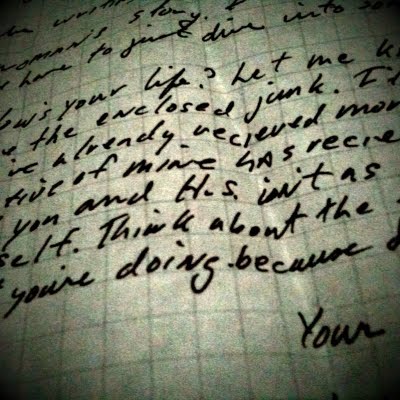 woman's story. I
have to just dive into so
ow's your life? Let me k
the enclosed junk. I
ve already recieved mor
tive of mine has recie
you and H.S. isn't as
self. Think about the
you're doing because
Your